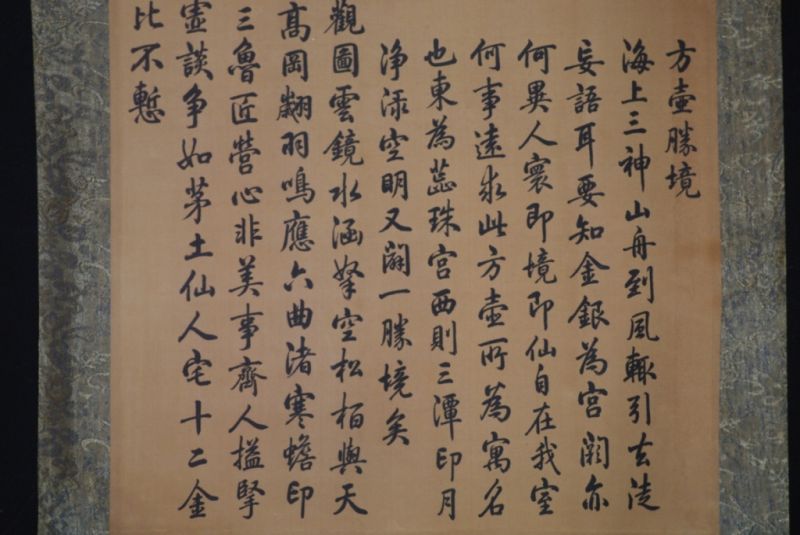 方壺勝境
海上三神山舟到風輒引去徒
妄語耳要知金銀為宮闕亦
何異人寰即境即仙自在我室
何事遠求此方壺所為寓名
也東為蕊珠宮西則三潭印月
淨淥空明又闢一勝境矣
觀圖雲鏡水涵拏空松栢與天
高岡翽羽鳴應六曲渚寒蟾印
三魯匠營心非美事齊人搤掔
虛談爭如茅土仙人宅十二金
比不慙